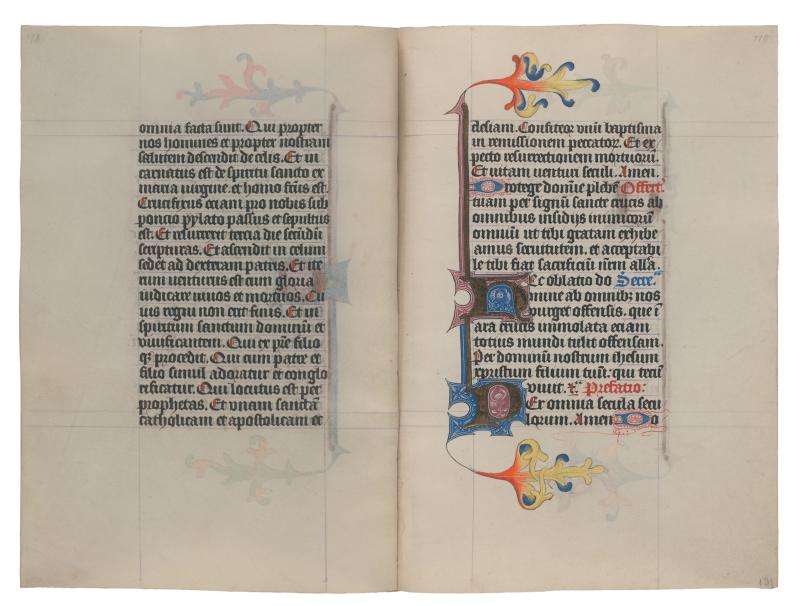 omnia facta sunt. Qui propter
nos homines et propter nostram
salutem descendit de celis. Et in
carnatus est de spiritu sancto ex
maria virgine. et homo fc̄us est.
Crucifixus eciam pro nobis sub
poncio pylato passus et sepultus
est. Et resurrexit tercia die secūdū
scripturas. Et ascendit in celum
sedet ad dexteram patris. Et ite
rum venturus est cum gloria
iudicare vivos et mortuos. Cu
ius regni non erit finis. Et in
spiritum sanctum dominū et
vivificantem. Qui ex pr̄e filio
qꝫ procedit. Qui cum patre et
filio simul adoratur et conglo
rificatur. Qui locutus est per
prophetas. Et vnam sanctā
catholicam et apostolicam ec
clesiam. Confiteor vnū baptisma
in remissionem peccatorꝝ. Et ex
pecto resurrectionem mortuorū.
Et vitam venturi seculi. Amen.
Protege domīe plebē Offert.
tuam per signū sancte crucis ab
omnibus insidijs inimicorū
omniū ut tibi gratam exhibe
amus servitutem. et acceptabi
le tibi fiat sacrificiū nr̄m all'a.
Hec oblatio do Secre.
mine ab omnibꝫ nos
purget offensis. que ī
ara crucis immolata eciam
totius mundi tulit offensam.
Per dominū nostrum ihesum
xpristum filium tuū: qui tecū
vivit. Prefatio:
Per omnia secula secu
lorum. Amen Do